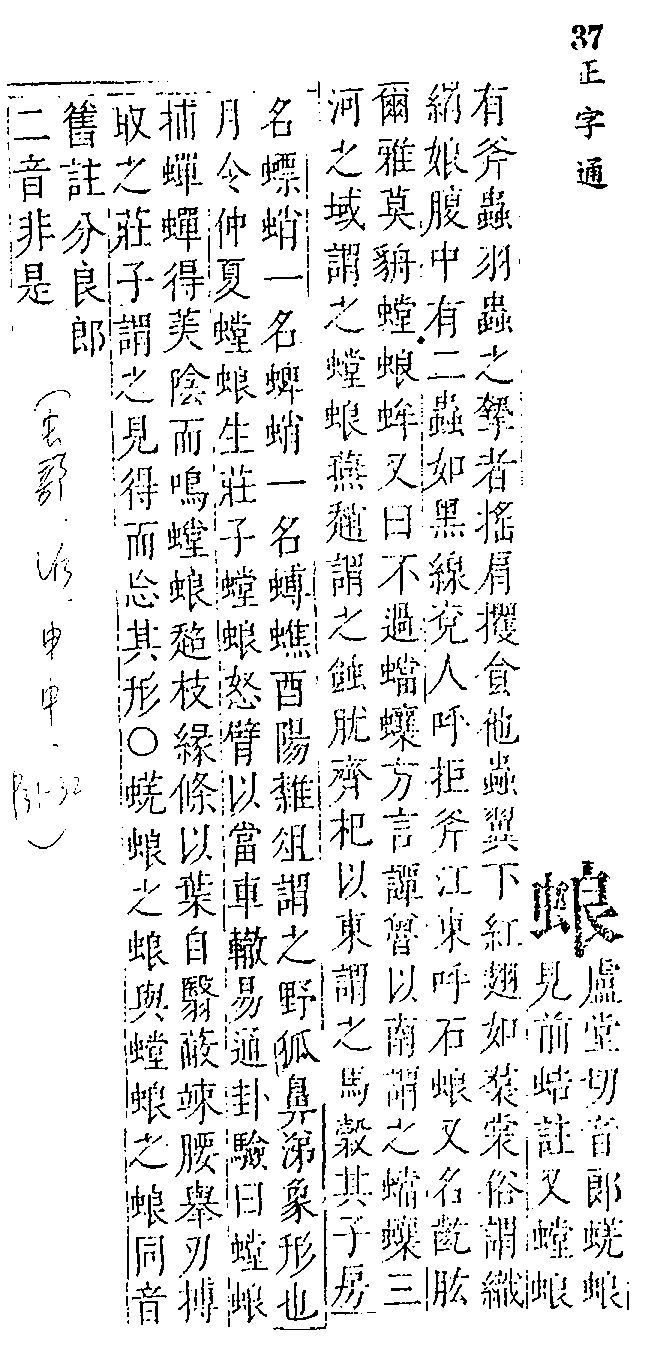 37
正字通
蜋
盧堂切音郎蜣蜋
見前蛣註又螳蜋
有斧蟲羽蟲之摯者搖肩攫食他蟲翼下紅翅如裝裳俗謂織
絹娘腹中有二蟲如黑線兖人呼拒斧江東呼石蜋又名齕肱
爾雅莫貈螳蜋蛑又曰不過蟷蠰方言譚魯以南謂之蟷蠰三
河之域謂之螳蜋燕趙謂之蝕肬齊杞以東謂之馬穀其子房
名螵蛸一名蜱蛸一名蟳蟭酉陽雜俎謂之野狐鼻涕象形也
月令仲夏螳蜋生莊子螳蜋怒臂以當車轍易通卦驗曰螳蜋
捕蟬蟬得美陰而鳴螳蜋趂枝緣條以葉自翳蔽竦腰舉刃搏
取之莊子謂之見得而忘其形〇蜣蜋之蜋與螳蜋之蜋同音
舊註分良郎
二音非是